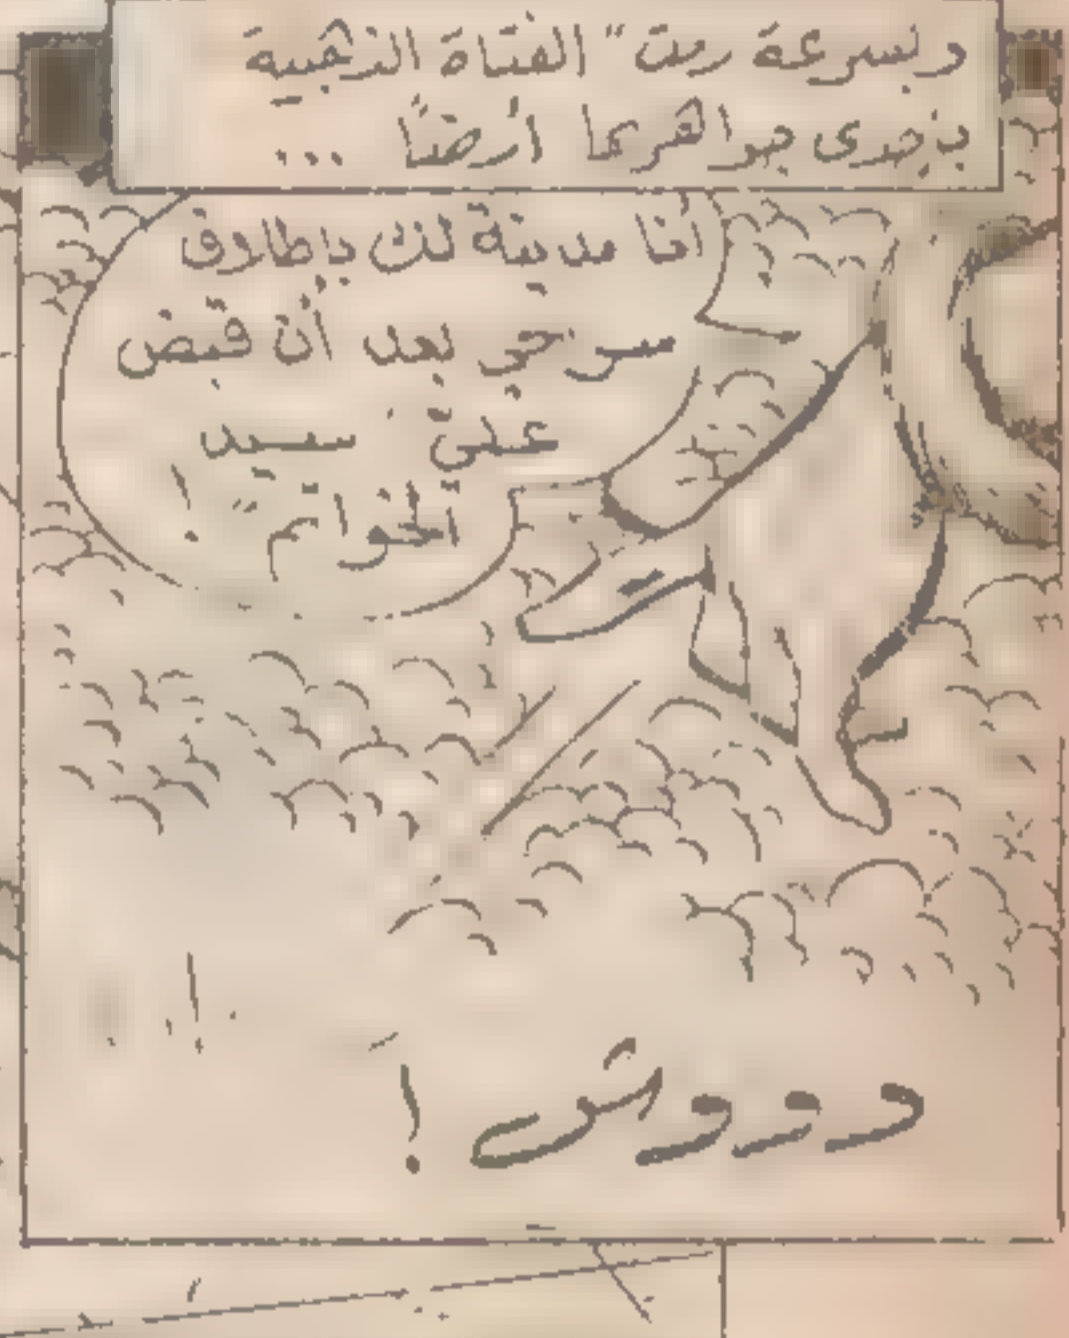 وبسرعة رمت "الفتاة الذهبية
بإحدى جواهرها أرضًا ...
أنا مدينة لك بإطلاق
سراحي بعد أن قبض
عليّ سيد
الخواتم !
دووش !